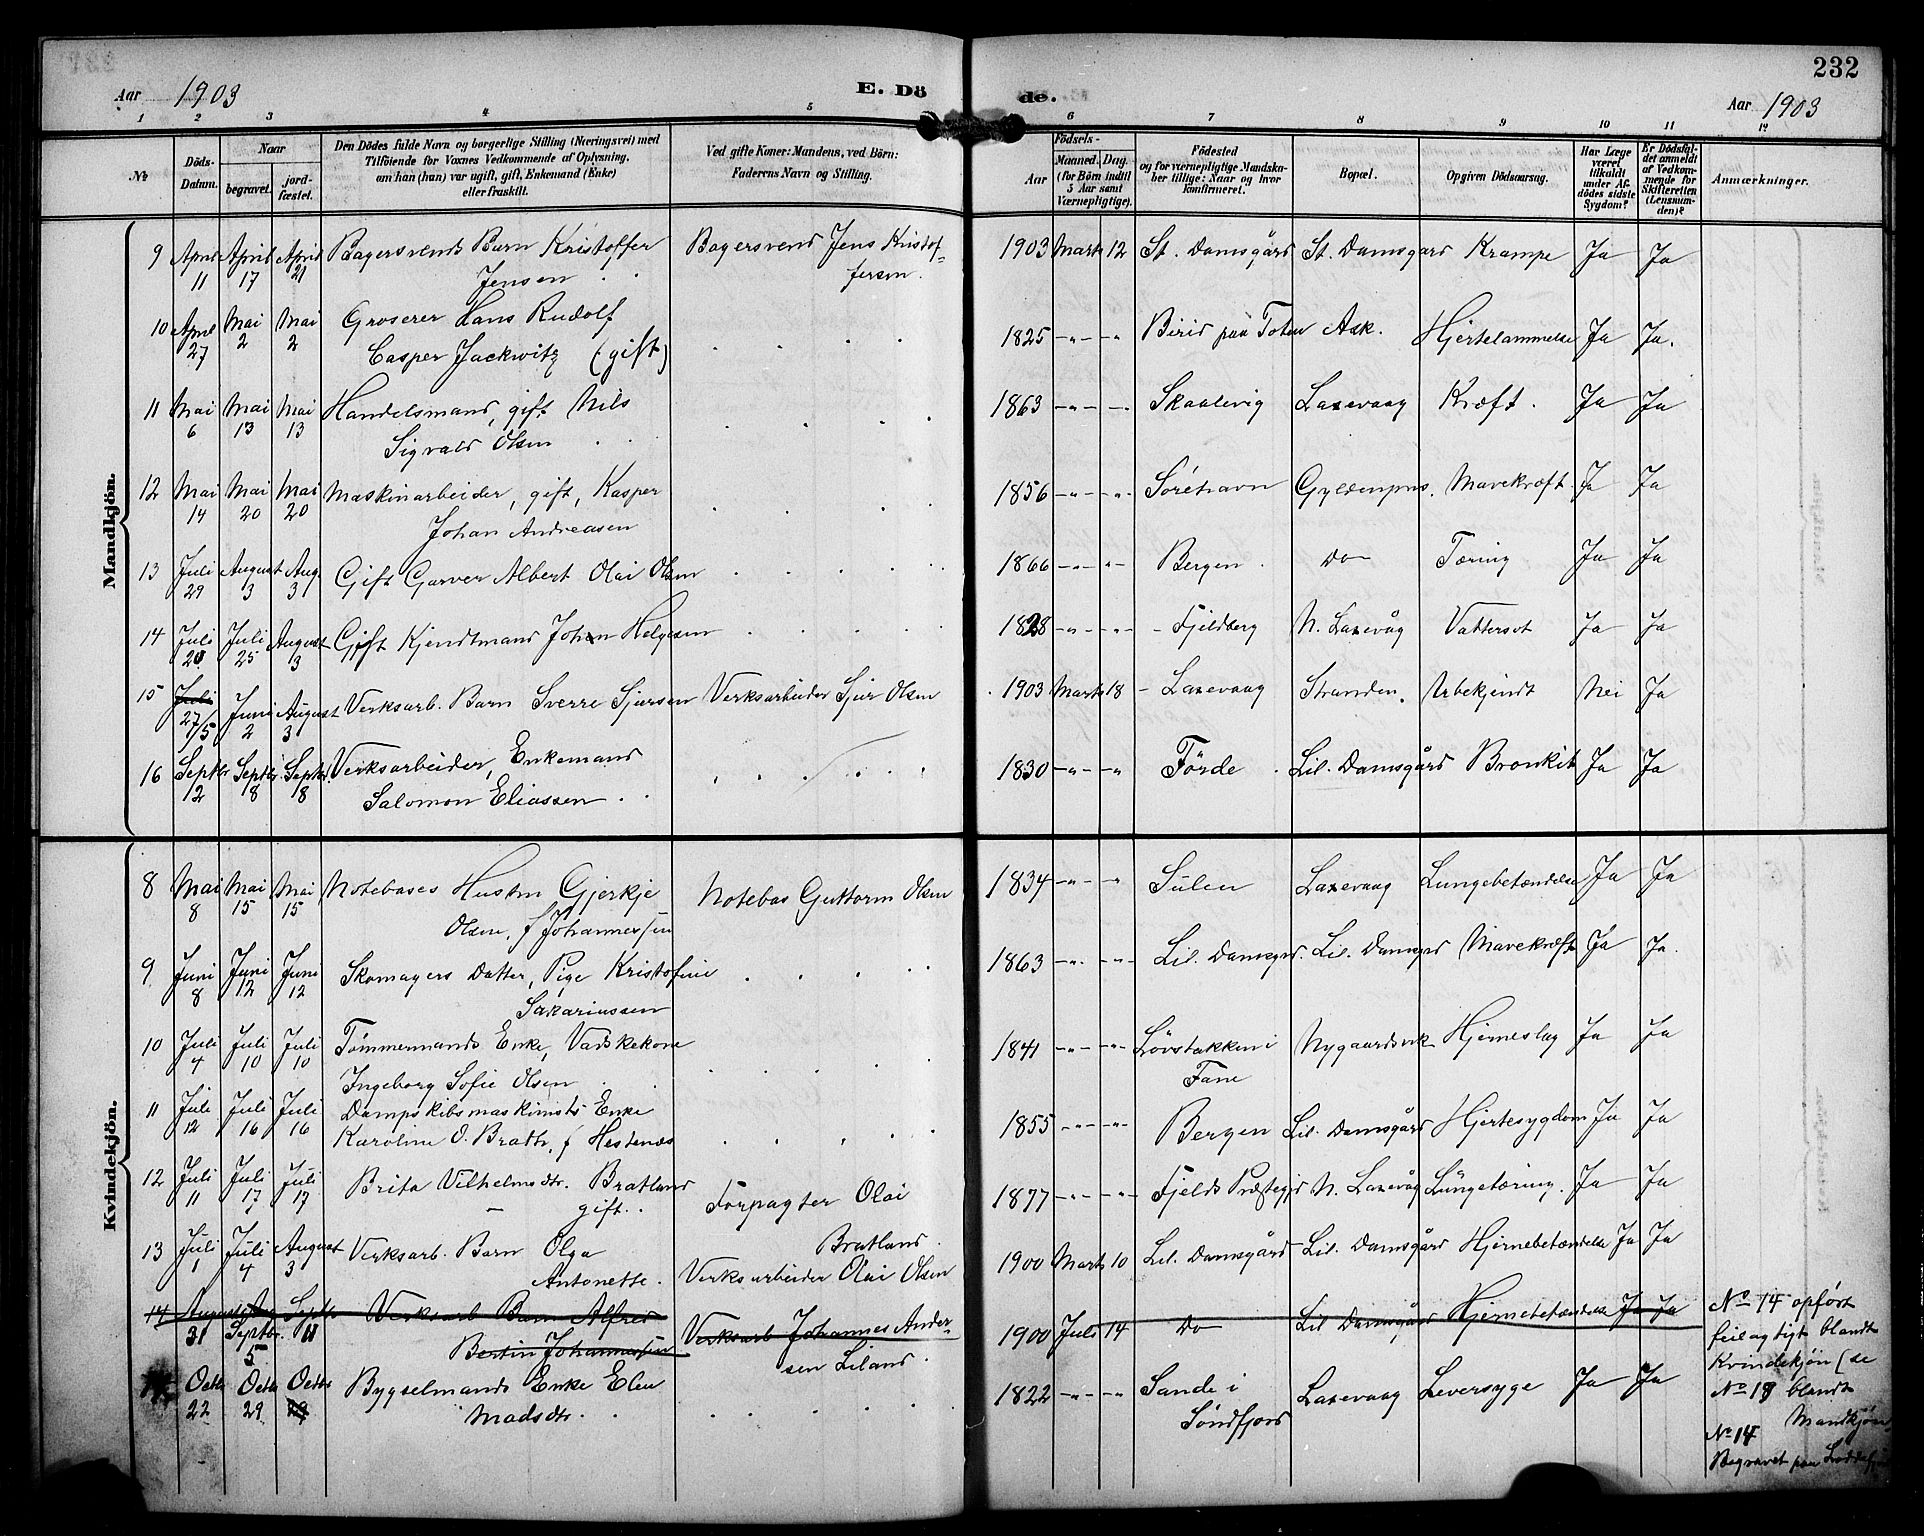 232
Aar 1903
E. Dö
de.
Aar 1903
1 2 3 4 5 6 7 8 9 10 11 12
№
Döds-Datum.
Naar
begravet.
jordfæstet.
Den Dödes fulde Navn og borgerlige Stilling (Næringsvei) med
Tilföiende for Voxnes Vedkommende af Oplysning,
om han (hun) var ugift, gift, Enkemand (Enke)
eller fraskilt.
Ved gifte Koner: Mandens, ved Börn:
Faderens Navn og Stilling.
Födsels-
Aar
Maaned. Dag.
(for Börn indtil
5 Aar samt
Værnepligtige).
Födested
og for værnepligtige Mandska-
ber tillige: Naar og hvor
konfirmeret.
Bopæl.
Opgiven Dödsaarsag.
Har Læge
været
tilkaldt
under Af-
dödes sidste
Sygdom?
Er Dödsfal-
det anmeldt
af Vedkom-
mende for
Skifteretten
(Lensman-
den)?
Anmærkninger.
Mandkjön.
9 April 11 April 17 April 21 Bagersvends Barn Kristoffer Bagersvend Jens Kristof- 1903 Marts 12 St. Damsgård St. Damsgard Krampe Ja Ja
Jensen fersen.
10 April 27 Mai 2 Mai 2 Groserer Hans Rudolf 1825 -"- -" Birid paa Toten Ask. Hjertelammelse Ja Ja.
Casper Jackwitz (gift)
11 Mai 6 Mai 13 Mai 13 Handelsmand, gift Nils 1863 -"- Skaalevig Laxevaag Kræft. Ja Ja
Sigvald Olsen
12 Mai 14 Mai 20 Mai 20 Maskinarbeider, gift, Kasper 1856 -"- -"- Gyldenpris. Mavekræft. Ja Ja
Johan Andreasen
13 Juli 29 August 3 Aug. 3 Gift Garver Albert Olai Olsen 1866 -"- "- Bergen Do Tæring Ja Ja
14 Juli 20 Juli 25 August 3 Gift Kjendtmand Johan Helgesen 1828 -"- -"- Fjeldberg N. Laxevåg Vattersot Ja Ja
15 Juli 27/5 Juni 2 August 3 Verksarb. Barn Sverre Sjursen Verksarbeider Sjur Olsen 1903 Marts 18 Laxevaag Stranden. Ubekjendt Nei Ja
16 Septbr 12 Septbr. 8 Septbr. 18 Verksarbeider, Enkemand 1830 -"- -" Förde Lil. Damsgård Bronkit Ja Ja
Salomon Eliassen
Kvindekjön.
8 Mai 8 Mai 15 Mai 15 Notebases Hustru Gjerkje Notebas Guttorm Olsen 1834 -"- -" Sulen Laxevaag Lungebetændelse Ja Ja
Olsen, f Johannessen
9 Juni 8 Juni 12 Juni 12 Skomagers Datter, Pige Kristofine 1863 -"- -"- Lil. Damsgrd. Lil. Damsgrd Mavekræft Ja Ja.
Sakariassen
10 Juli 4 Juli 10 Juli 10 Tömmermands Enke, Vadskekone 1841 -"- -"- Lövstakken i Nygaardsvik Hjerneslag Ja Ja
Ingeborg Sofie Olsen Fane
11 Juli 12 Juli 16 Juli 16 Dampskibsmaskinists Enke 1855 -"- -"- Bergen Lil. Damsgård Hjertesygdom Ja Ja
Karoline O. Brath, f Hestenæs
12 Juli 11 Juli 17 Juli 17 Brita Vilhelmsdtr. Bratland Forpagter Olai 1877 -"- -"- Fjelds Præstegjd N. Laxevåg Lungetæring. Ja Ja
gift. Bratland.
13 Juli 1 Juli 4 August 3 Verksarb. Barn Olga Verksarbeider Olai Olsen 1900 Marts 10 Lil. Damsgård Lil. Damsgård Hjernebetændelse Ja Ja
Antonette.
14 August 31 Septbr. 5 Septbr 11 Verksarb Barn Alfred Verksarb Johannes Ander- 1900 Juli 14 Do Lil Damsgård Hjernebetændelse Ja Ja
Bertin Johannessen sen Liland.
Octb 22 Octb 29 Octbr 29 Bygselmands Enke Elen 1822 -"- -"- Sande i Laxevaag Leversyge Ja Ja
Madsdtr. Söndfjord
No 14 opført
feilagtigt blandt
Kvindekjøn (se
No 18 blandt
Mandkjøn
No 14
Begravet paa